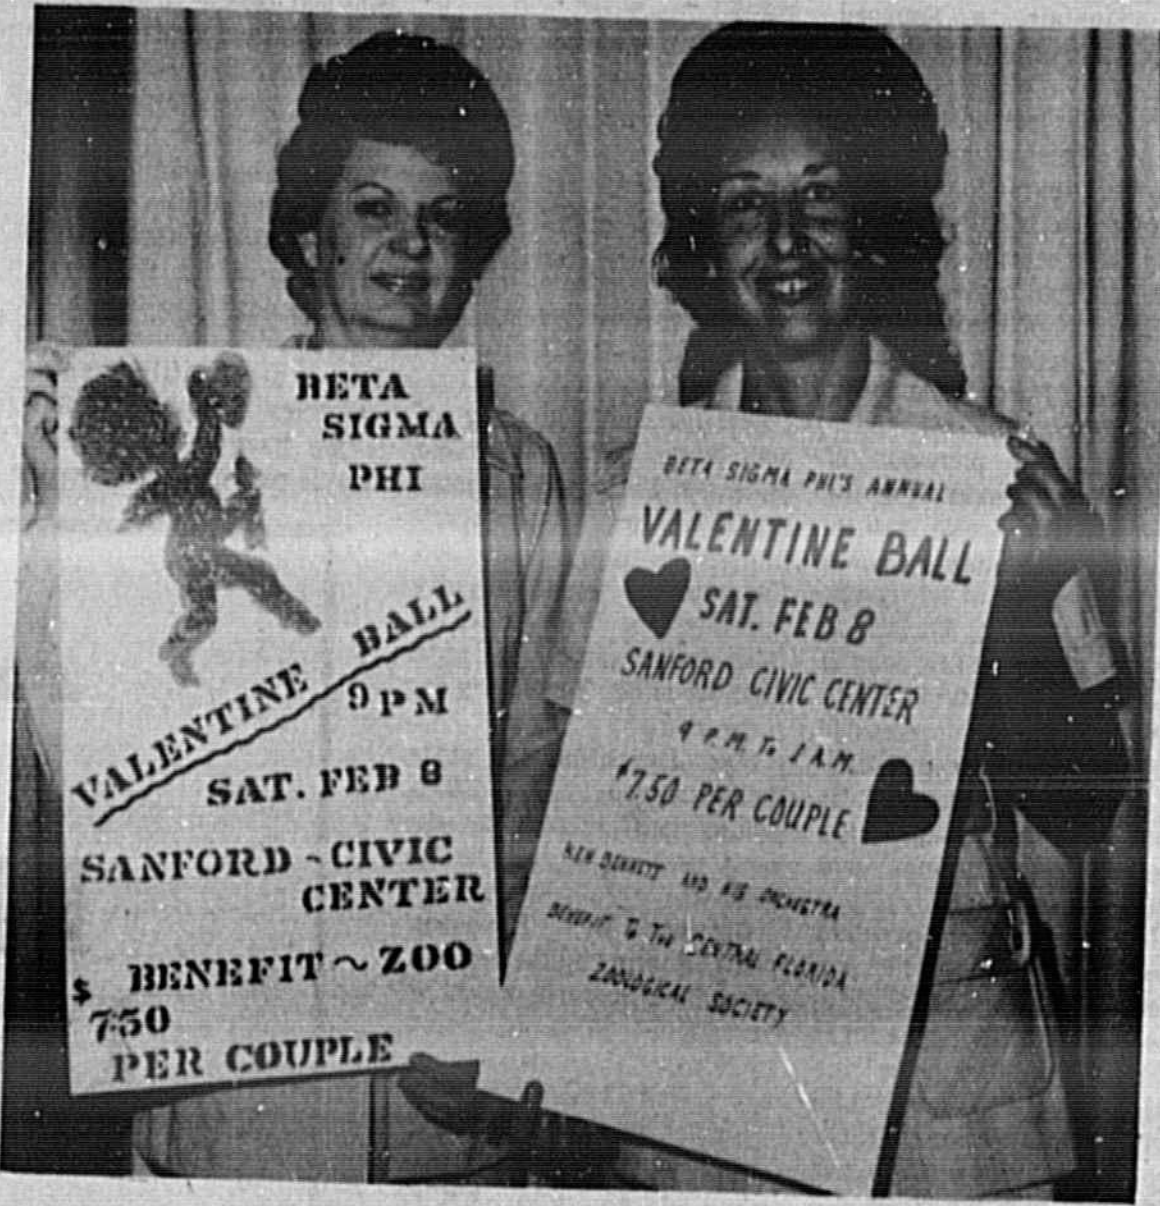 BETA
SIGMA
PHI
VALENTINE BALL
9 PM
SAT. FEB 8
SANFORD ~ CIVIC
CENTER
BENEFIT ~ ZOO
$
7.50
PER COUPLE
BETA SIGMA PHI'S ANNUAL
VALENTINE BALL
SAT. FEB 8
SANFORD CIVIC CENTER
9 P.M. To 1 A.M.
$7.50 PER COUPLE
KEN BENNETT AND HIS ORCHESTRA
BENEFIT To The CENTRAL FLORIDA
ZOOLOGICAL SOCIETY